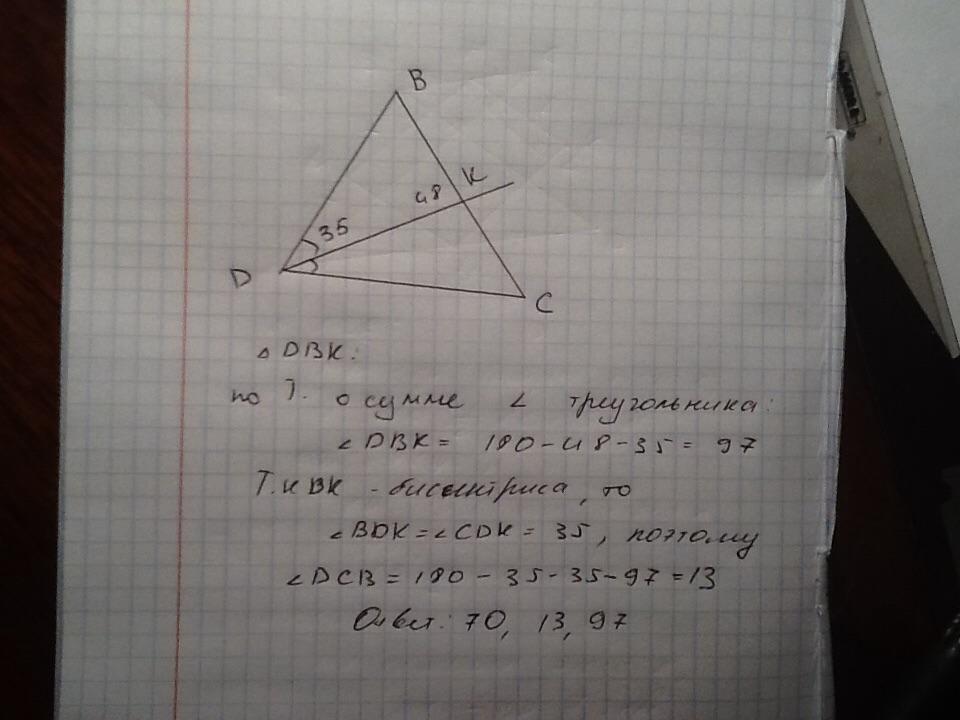 B
K
48
35
D
C
△ DBK:
по Т. о сумме ∠ треугольника:
∠DBK = 180-48-35 = 97
Т.к BK - биссектриса, то
∠BDK = ∠CDK = 35, поэтому
∠DCB = 180 - 35-35-97 = 13
Ответ: 70, 13, 97